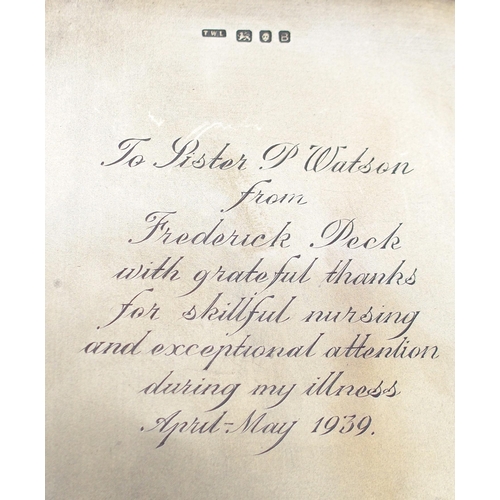 T W L B
To Sister P Watson
from
Frederick Peck
with grateful thanks
for skillful nursing
and exceptional attention
during my illness
April-May 1939.